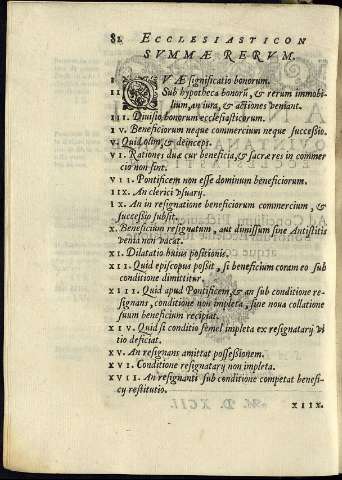 82 ECCLESIASTICON
SVMMÆ RERVM.
I QVÆ significatio bonorum.
II Sub hypotheca bonorũ, & rerum immobi-
lium, an iura, & actiones veniant.
III. Diuisio bonorum ecclesiasticorum.
IV. Beneficiorum neque commercium neque successio.
V. Quid olim, & deinceps.
VI. Rationes duæ cur beneficia, & sacræ res in commer
cio non sint.
VII. Pontificem non esse dominum beneficiorum.
IIX. An clerici vsuarij.
IX. An in resignatione beneficiorum commercium, &
successio subsit.
X. Beneficium resignatum, aut dimissum sine Antistitis
venia non vacat.
XI. Dilatatio huius positionis.
XII. Quid episcopus possit, si beneficium coram eo sub
conditione dimittitur.
XIII. Quid apud Pontificem, & an sub conditione re-
signans, conditione non impleta, sine noua collatione
suum beneficium recipiat.
XIV. Quid si conditio semel impleta ex resignatarij vi
tio deficiat.
XV. An resignans amittat possessionem.
XVI. Conditione resignatarij non impleta.
XVII. An resignanti sub conditione competat benefi-
cij restitutio.
XIIX.